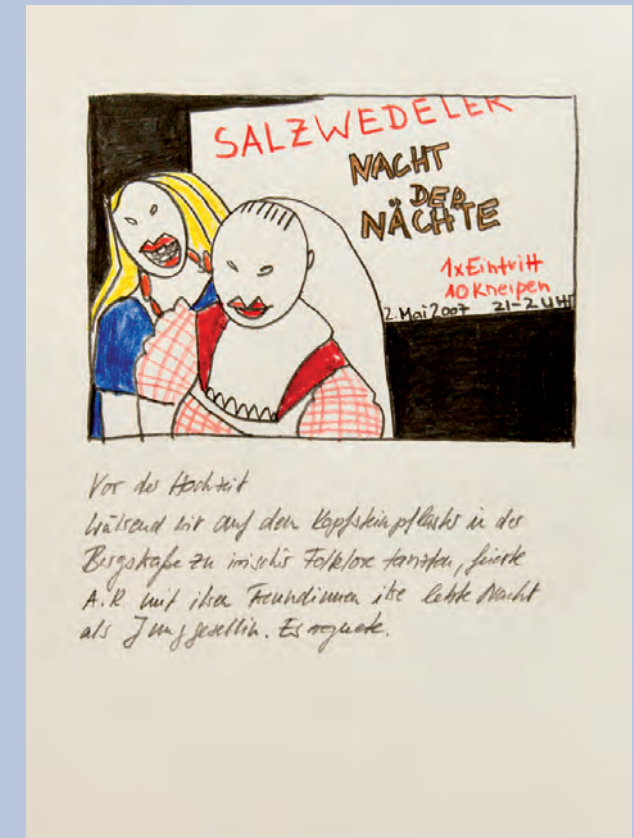 SALZWEDELER
NACHT
DER
NÄCHTE
1xEintritt
10 Kneipen
2. Mai 2007 21-2 UHR
Vor der Hochzeit
Während wir auf dem Kopfsteinpflaster in der
Bergstraße zu irischer Folklore tanzten, feierte
A.R mit ihren Freundinnen ihre letzte Nacht
als Junggesellin. Es regnete.